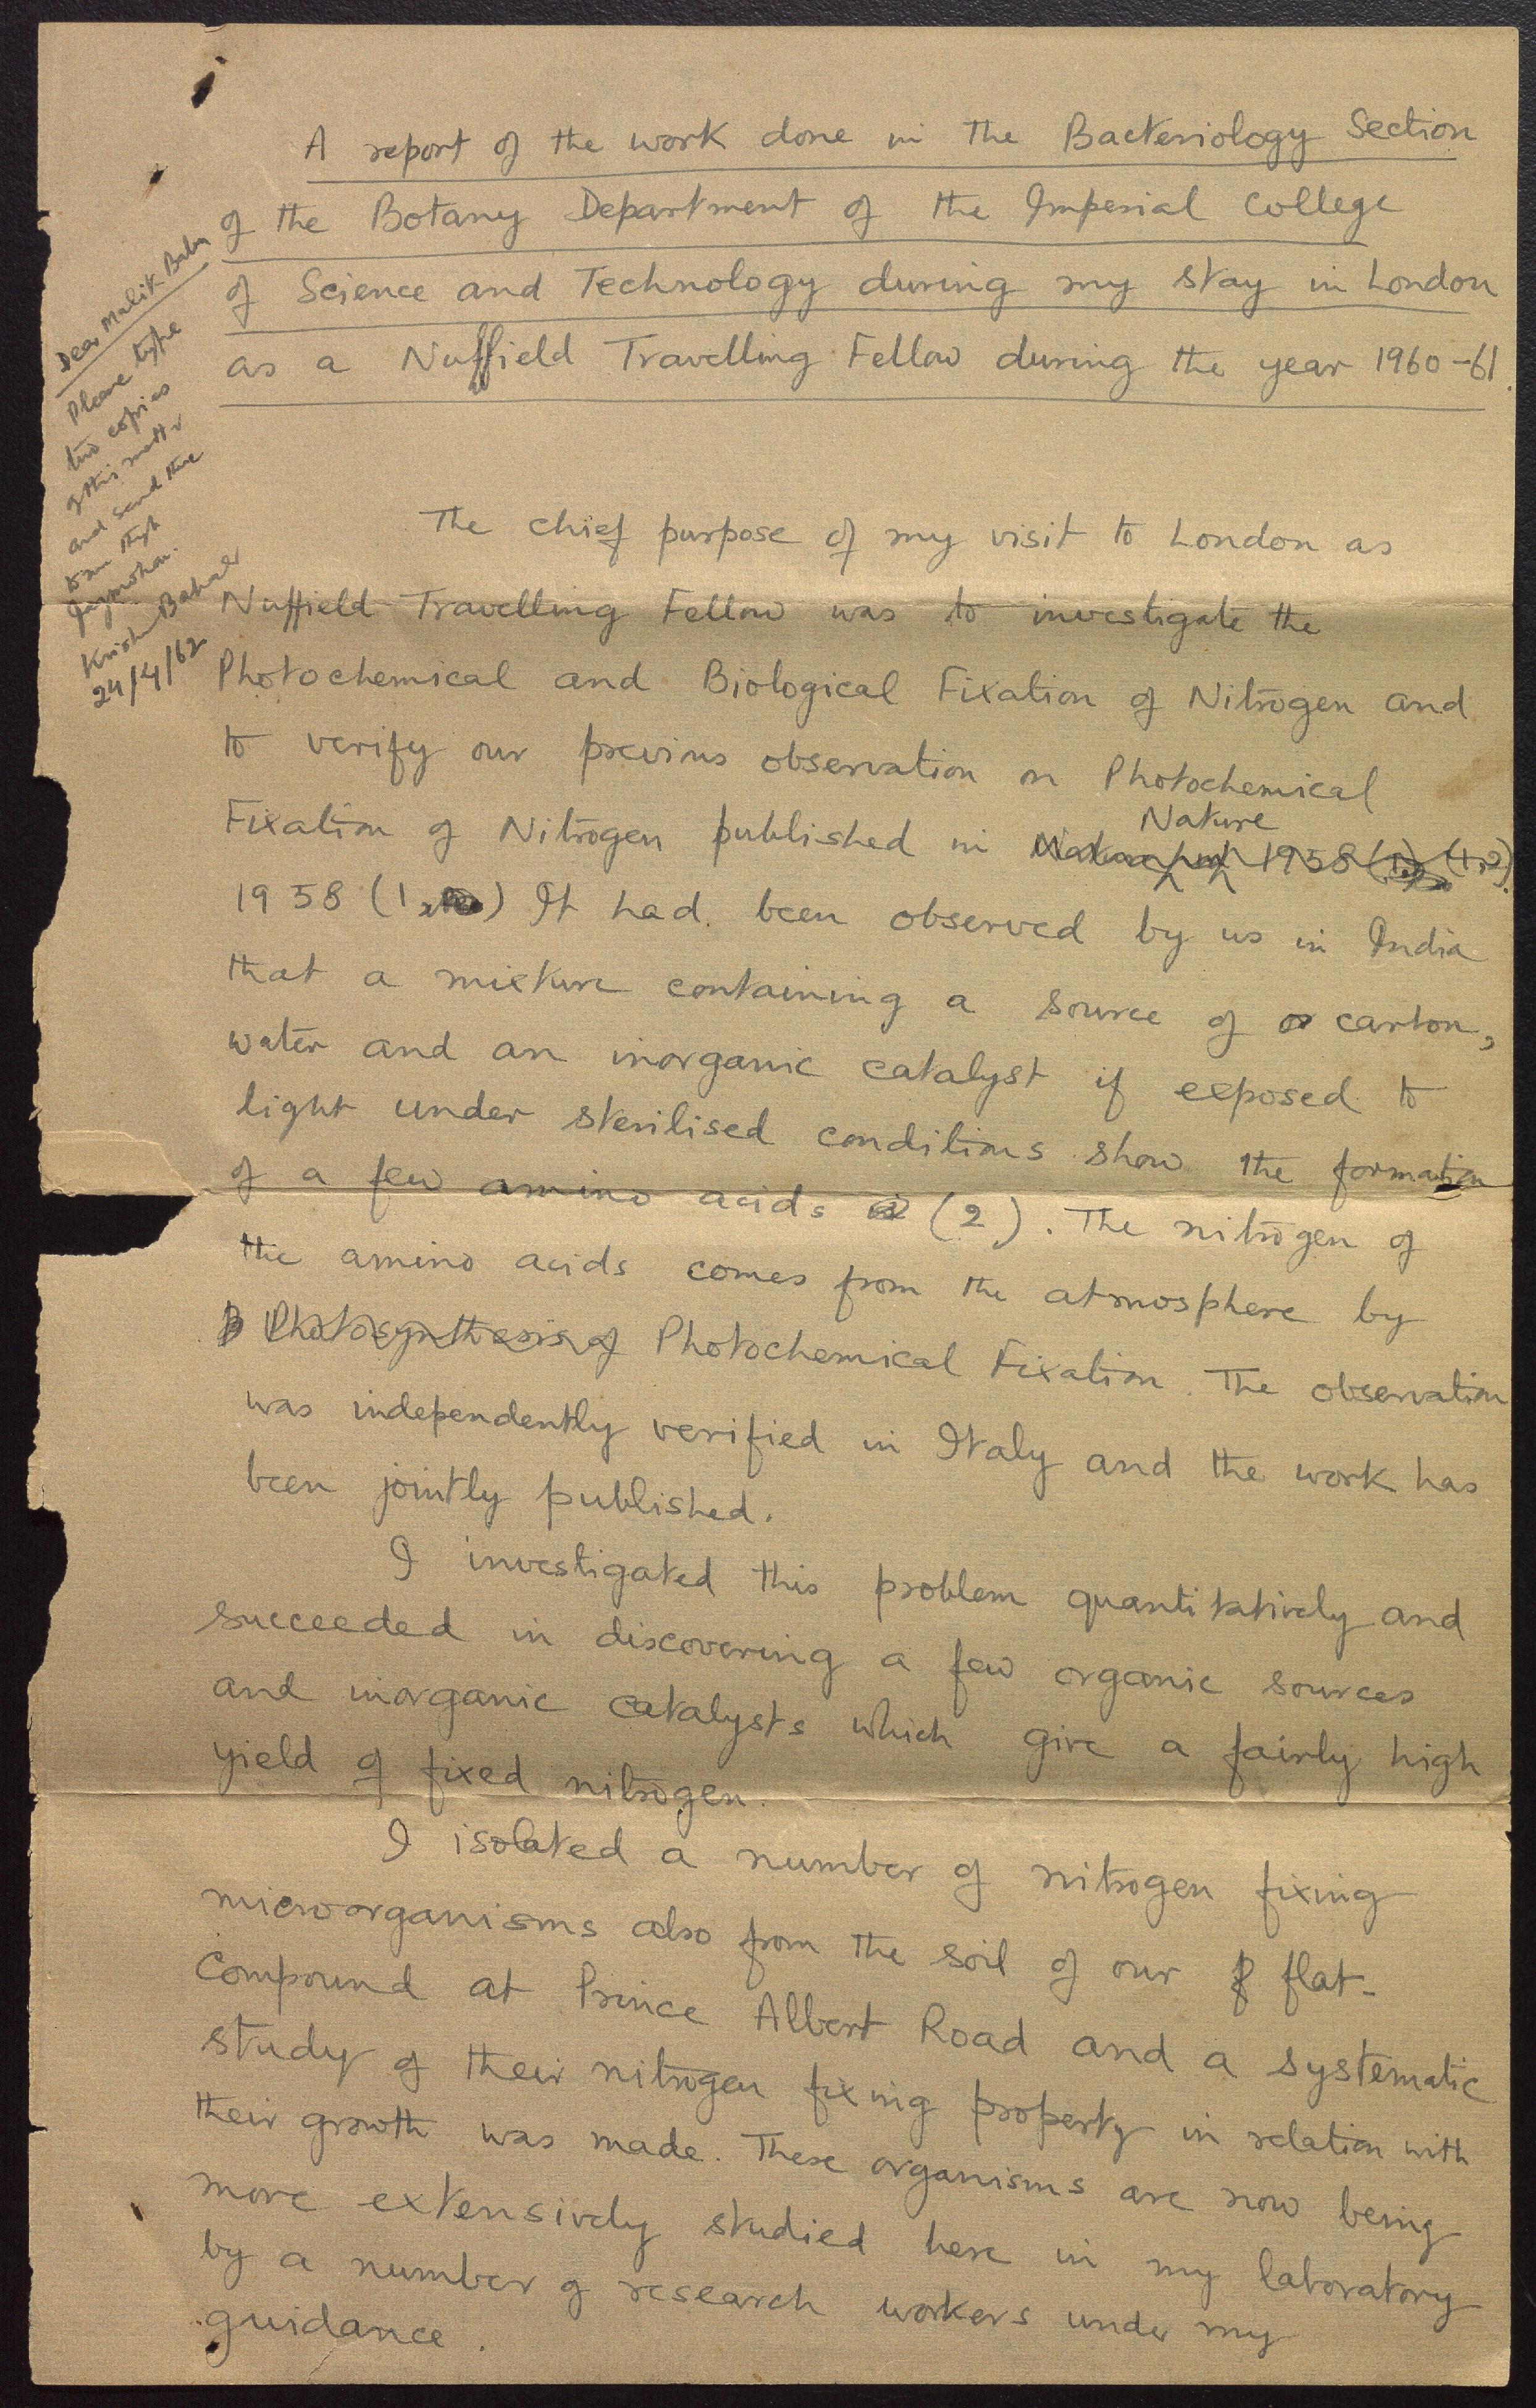 A report of the work done in the Bacteriology Section
of the Botany Department of the Imperial College
of Science and Technology during my stay in London
as a Nuffield Travelling Fellow during the year 1960-61.
Dear Malik Babu
Please type
two copies
of this matter
and send these
to me thro
Jagmohan.
Krishna Bahadur
24/4/62
The chief purpose of my visit to London as
Nuffield Travelling Fellow was to investigate the
Photochemical and Biological Fixation of Nitrogen and
to verify our previous observation on Photochemical
Nature
Fixation of Nitrogen published in 1958 (1,2).
1958 (1, ) It had been observed by us in India
that a mixture containing a source of carbon,
water and an inorganic catalyst if exposed to
light under sterilised conditions show the formation
of a few amino acids (2). The nitrogen of
the amino acids comes from the atmosphere by
Photosynthesis of Photochemical Fixation. The observation
was independently verified in Italy and the work has
been jointly published.
I investigated this problem quantitatively and
succeeded in discovering a few organic sources
and inorganic catalysts which give a fairly high
yield of fixed nitrogen.
I isolated a number of nitrogen fixing
microorganisms also from the soil of our flat-
compound at Prince Albert Road and a systematic
study of their nitrogen fixing property in relation with
their growth was made. These organisms are now being
more extensively studied here in my laboratory
by a number of research workers under my
guidance.